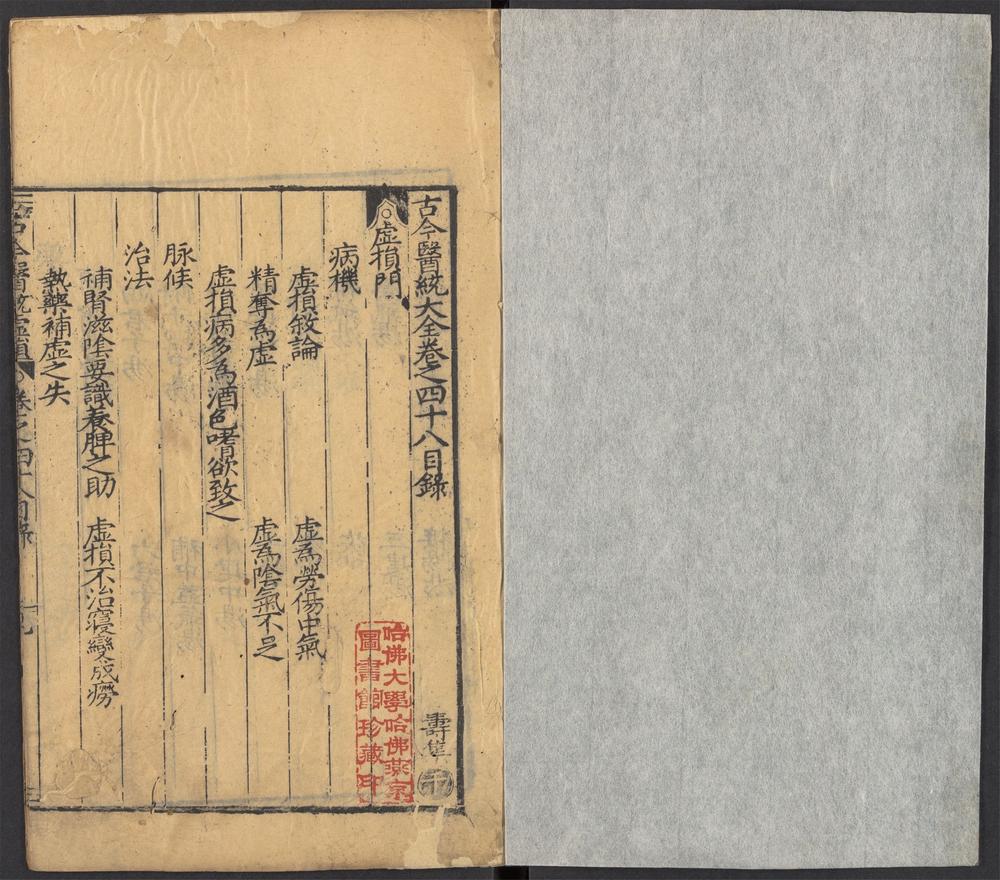 古今醫統大全卷之四十八目錄
壽 干
虛損門
病機
虛損敘論 虛為勞傷中氣
精奪為虛 虛為陰氣不足
虛損病多為酒色嗜欲致之
脉候
治法
補腎滋陰要識養脾之助 虛損不治寖變成癆
執藥補虛之失
古今醫統虛損 卷之四十八目錄
哈佛大學哈佛燕京
圖書館珍藏印